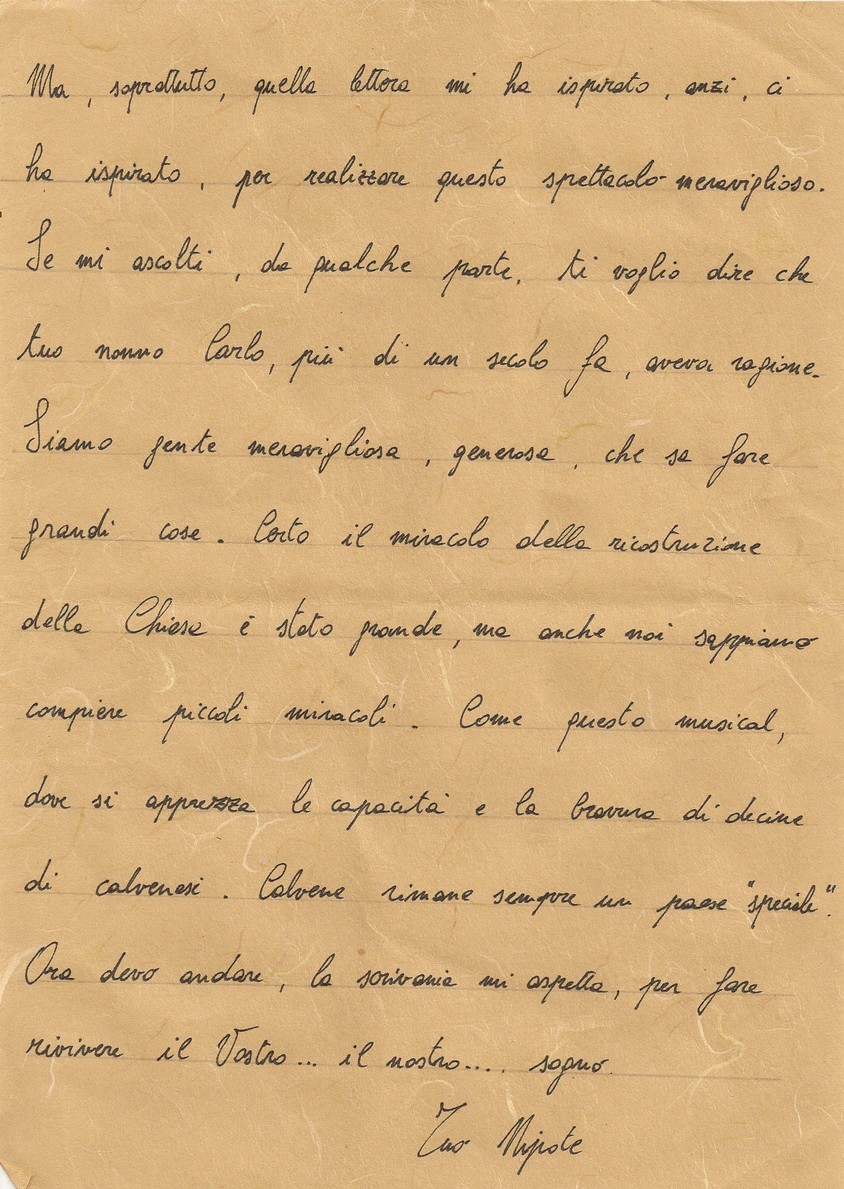 Ma, soprattutto, quella lettera mi ha ispirato, anzi, ci
ha ispirato, per realizzare questo spettacolo meraviglioso.
Se mi ascolti, da qualche parte, ti voglio dire che
tuo nonno Carlo, più di un secolo fa, aveva ragione.
Siamo gente meravigliosa, generosa, che sa fare
grandi cose. Certo il miracolo della ricostruzione
della Chiesa è stato grande, ma anche noi sappiamo
compiere piccoli miracoli. Come questo musical,
dove si apprezza le capacità e la bravura di decine
di calvenesi. Calvene rimane sempre un paese "speciale".
Ora devo andare, la scrivania mi aspetta, per fare
rivivere il Vostro... il nostro.... sogno.
Tuo Nipote